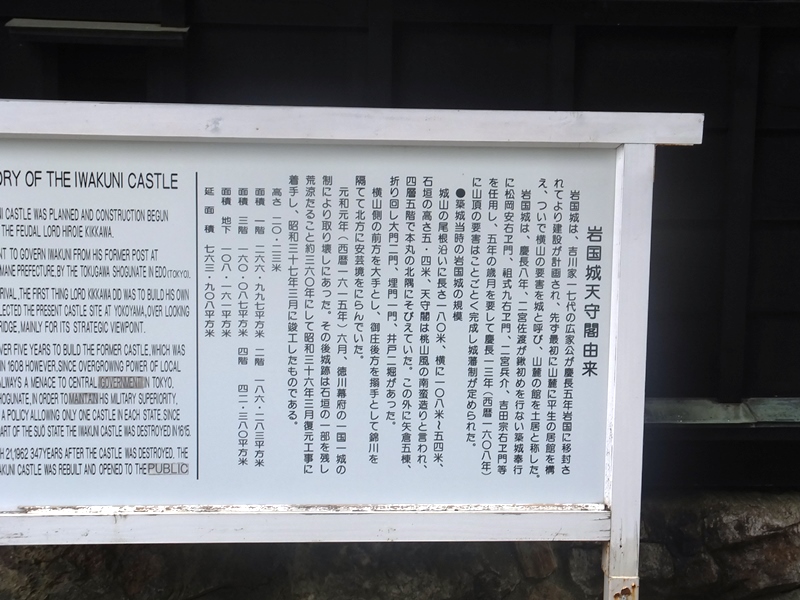 ORY OF THE IWAKUNI CASTLE
NI CASTLE WAS PLANNED AND CONSTRUCTION BEGUN
THE FEUDAL LORD HIROIE KIKKAWA.
NT TO GOVERN IWAKUNI FROM HIS FORMER POST AT
MANE PREFECTURE. BY THE TOKUGAWA SHOGUNATE IN EDO (TOKYO).
RIVAL, THE FIRST THING LORD KIKKAWA DID WAS TO BUILD HIS OWN
LECTED THE PRESENT CASTLE SITE AT YOKOYAMA, OVER LOOKING
RIDGE, MAINLY FOR ITS STRATEGIC VIEWPOINT.
VER FIVE YEARS TO BUILD THE FORMER CASTLE, WHICH WAS
IN 1608 HOWEVER, SINCE OVERGROWING POWER OF LOCAL
ALWAYS A MENACE TO CENTRAL GOVERNMENT IN TOKYO,
HOGUNATE, IN ORDER TO MAINTAIN HIS MILITARY SUPERIORITY,
A POLICY ALLOWING ONLY ONE CASTLE IN EACH STATE, SINCE
ART OF THE SUO STATE THE IWAKUNI CASTLE WAS DESTROYED IN 1615.
H 21, 1962 347 YEARS AFTER THE CASTLE WAS DESTROYED, THE
AKUNI CASTLE WAS REBUILT AND OPENED TO THE PUBLIC
岩国城天守閣由来
岩国城は、吉川家一七代の広家公が慶長五年岩国に移封さ
れてより建設が計画され、先ず最初に山麓に平生の居館を構
え、ついで横山の要害を城と呼び、山麓の館を土居と称した。
岩国城は、慶長八年、二宮佐渡が鍬初めを行ない築城奉行
に松岡安右ヱ門、祖式九右ヱ門、二宮兵介、吉田宗右ヱ門等
を任用し、五年の歳月を要して慶長一三年(西暦一六〇八年)
に山頂の要害はことごとく完成し城藩制が定められた。
●築城当時の岩国城の規模
城山の尾根沿いに長さ一八〇米、横に一〇八米~五四米、
石垣の高さ五・四米、天守閣は桃山風の南蛮造りと言われ、
四層五階で本丸の北隅にそびえていた。この外に矢倉五棟、
折り回し大門二門、埋門一門、井戸二堀があった。
横山側の前方を大手とし、御庄後方を搦手として錦川を
隔てて北方に安芸境をにらんでいた。
元和元年(西暦一六一五年)六月、徳川幕府の一国一城の
制により取り壊しにあった。その後城跡は石垣の一部を残し
荒涼たること約三六〇年にして昭和三十六年三月復元工事に
着手し、昭和三十七年三月に竣工したものである。
高さ 二〇・二三米
面積 一階 二六六・九九七平方米 二階 一八六・二八三平方米
面積 三階 一六〇・〇八七平方米 四階 四二・三八〇平方米
面積 地下 一〇八・一六一平方米
延面積 七六三・九〇八平方米